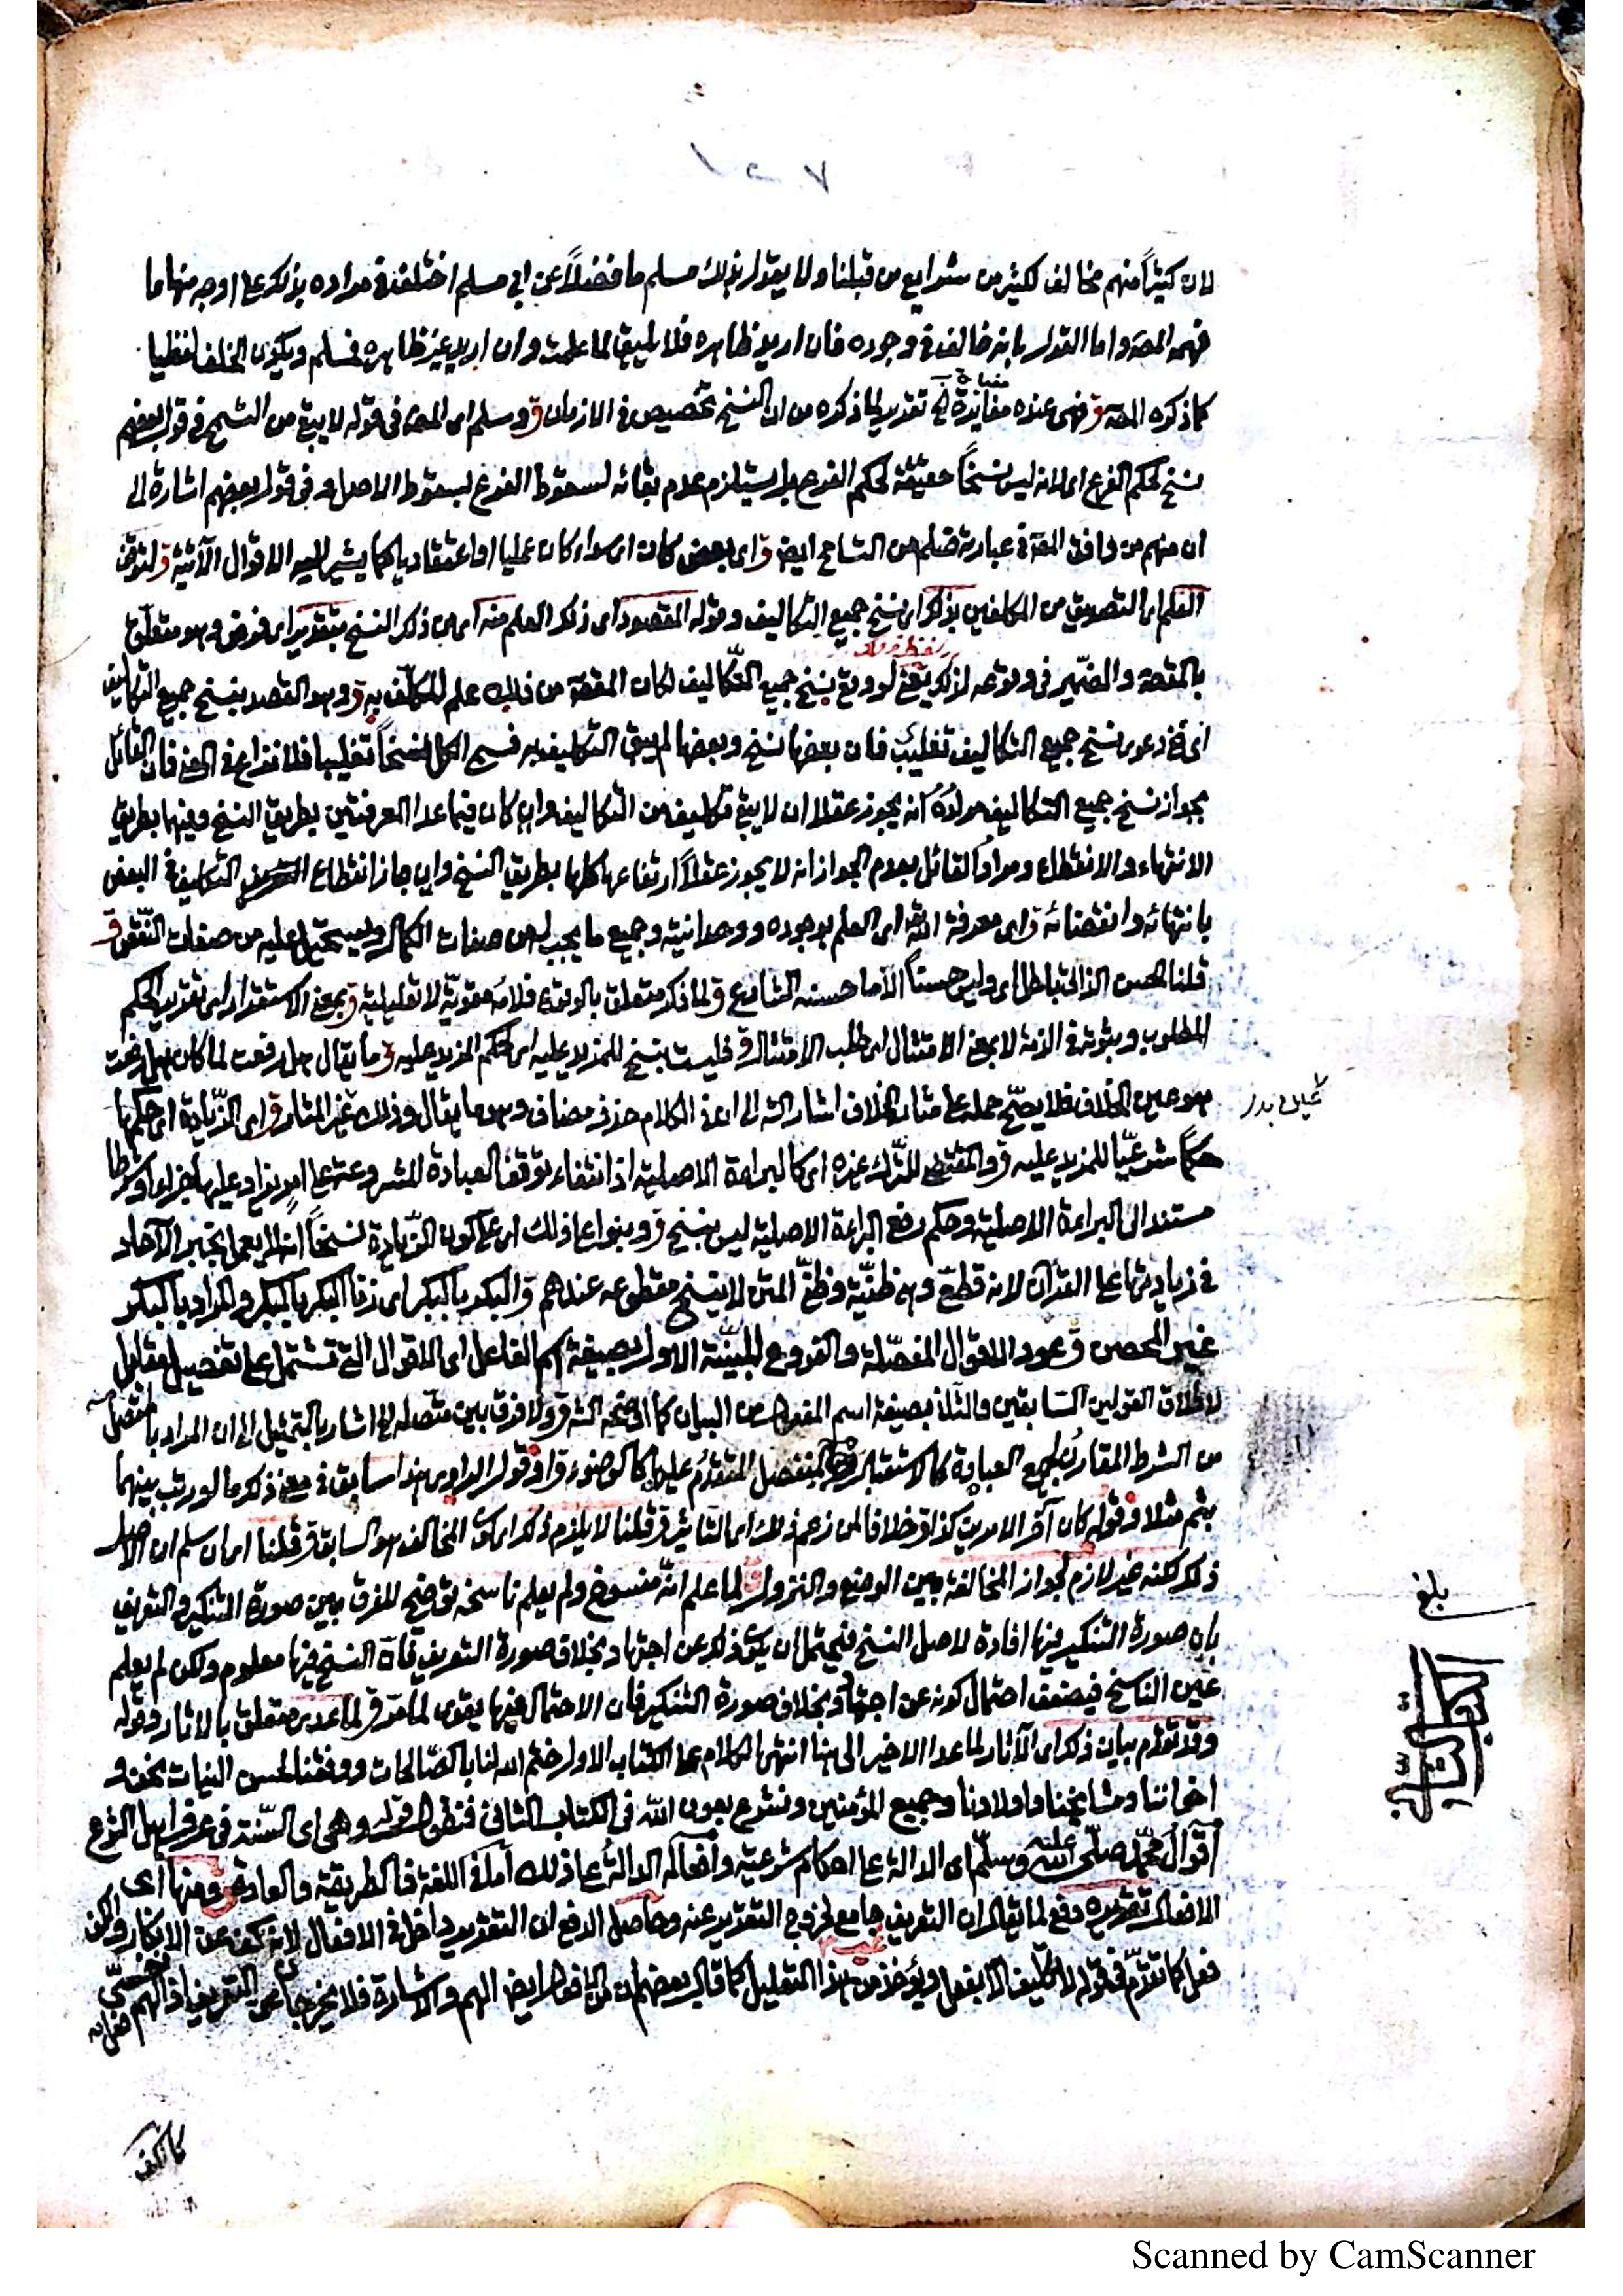 لان كثيرا منهم مخالف لكثير من شرايع من قبلنا ولا يقول بذلك مسلم ما فضلاً عن ابي مسلم اختلف في مراده بذلك على اوجه منها ما
فهمه المصـ واما القول بانه خالف في وجوده فان اريد ظاهره فلا يليق لما علمت وان اريد غير ظاهره فمسلم ويكون الخلف لفظيا
كما ذكره المصـ ق فهى عنده مغايرة الخ تقرير لما ذكره من ان النسخ تخصيص في الازمان ق وسلم اى المصـ فى قوله لا يبقى من الشرح فى قول بعضهم
نسخ لحكم الفرع اى لانه ليس نسخاً حقيقة لحكم الفرع بل يستلزم عدم بقائه لسقوط الفرع بسقوط الاصل وفى قول بعضهم اشارة الى
ان منهم من وافق المصـ في عبارته فسلم من التسامح ايضا ق اى بعض كان اى سواء كان عمليا او اعتقاديا كما يشير اليه الاقوال الآتية ق لتوقف
العلم اى التصديق من المكلفين بذلك اى نسخ جميع التكاليف وقوله المقصود اى ذلك العلم منه اى من ذلك النسخ بتقدير اى فرض وهو متعلق
بالمقصود والضمير فى وقوعه لذلك يعنى لو وقع نسخ جميع التكاليف لكان المقصود من ذلك علم المكلف به ق وهو القصد بنسخ جميع التكاليف
اى فى دعوى نسخ جميع التكاليف تغليب فان بعضها نسخ وبعضها لم يبق التكليف به فسمى الكل نسخاً تغليبا فلا نزاع فى المعنى فان القائل
بجواز نسخ جميع التكاليف مراده انه يجوز عقلا ان لا يبقى تكليف من التكاليف وان كان فيما عدا المعرفتين بطريق النسخ وفيها بطريق
الانتهاء والانقطاع ومراد القائل بعدم الجواز انه لا يجوز عقلاً ارتفاعها كلها بطريق النسخ وان جاز انقطاع التكليف فى البعض
بانتهائه وانقضائه ق اى معرفة الله اى العلم بوجوده ووحدانيته وجميع ما يجب له من صفات الكمال ويستحيل عليه من صفات النقص ق
قلنا الحسن الذاتى باطل اى وليس حسناً الا ما حسنه الشارع ق لما ذكر متعلق بالوقوع فلامه مقوية لا تعليلية ق بمعنى الاستقرار اى تقرير الحكم
المطلوب وثبوته فى الذمة لا بمعنى الامتثال اى طلب الامتثال ق فليست بنسخ للمزيد عليه اى لحكم المزيد عليه ق ما يقال هل رفعت لما كان هل رفعت
هو عين الخلاف فلا يصح حمله على مثار الخلاف اشار الشـ الى ان فى الكلام حذف مضاف وهو ما يقال وذلك غير المثار ق اى الزيادة اى حكمها
حكماً شرعياً للمزيد عليه ق والمقتضى للترك غيره اى كالبراءة الاصلية اذ انتفاء توقف العبادة المشروعة على امر يزاد عليها جزءا او شرطا
مستند الى البراءة الاصلية وحكم رفع البراءة الاصلية ليس بنسخ ق وبنوا على ذلك اى على كون الزيادة نسخاً انه لا يعمل بخبر الآحاد
فى زيادتها على القرآن لانه قطعى وهى ظنية وظنى المتن لا ينسخ مقطوعه عندهم ق البكر بالبكر اى زنا البكر بالبكر والمراد بالبكر
غير المحصن ق وعود الاقوال المفصلة والفروع المبينة الاول بصيغة اسم الفاعل اى الاقوال التى تشتمل على تفصيل مقابل
لاطلاق القولين السابقين والثانى بصيغة اسم المفعول من البيان كما اوضحه الشـ ق ولا فرق بين متصله الخ اشار بالتمثيل الى ان المراد بالمتصل
من الشرط المقارن لجميع العبادة كالاستقبال وبالمنفصل المتقدم عليها كالوضوء ق او قول الراوى هذا سابق فى معنى ذلك ما لو رتب بينهما
بثم مثلا او قوله كان آخر الامرين كذا ق خلافا لمن زعم ذلك اى التأثير ق قلنا لا يلزم ذلك اى كون المخالف هو السابق ق قلنا اى ان سلم ان الاصل
ذلك لكنه غير لازم لجواز المخالفة بين الوضع والنزول ق لما علم انه منسوخ ولم يعلم ناسخه توضيح للفرق بين صورة التنكير والتعريف
بان صورة التنكير فيها افادة لاصل النسخ فيحتمل ان يكون ذلك عن اجتهاد بخلاف صورة التعريف فان النسخ فيها معلوم ولكن لم يعلم
عين الناسخ فيضعف احتمال كونه عن اجتهاد بخلاف صورة التنكير فان الاحتمال فيها يقوى لما مر ق لما عدا متعلق بالاثار وقوله
وقد تقدم بيان ذلك اى الآثار لما عدا الاخير الى هنا انتهى الكلام على الكتاب الاول ختم الله لنا بالصالحات ووفقنا لحسن النيات نحن و
اخواننا ومشايخنا واولادنا وجميع المؤمنين ونشرع بعون الله فى الكتاب الثانى فنقول قوله وهى اى السنة فى عرف اهل الشرع
اقوال محمد صلى الله عليه وسلم اى الدالة على احكام شرعية وافعاله الدالة على ذلك اما فى اللغة فالطريقة والعادة ق ومنها اى
الافعال تقريره دفع لما يقال ان التعريف غير جامع لخروج التقرير عنه وحاصل الدفع ان التقرير داخل فى الافعال لانه كف عن الانكار والكف
فعل كما تقدم فى قوله لا تكليف الا بفعل ويؤخذ من هذا التعليل كما قال بعضهم ان من الافعال ايضا الهم والاشارة فلا يخرجا عن التعريف اذ الهم فعل نفسى
بلغ
الكتاب الثانى
كالكف
Scanned by CamScanner